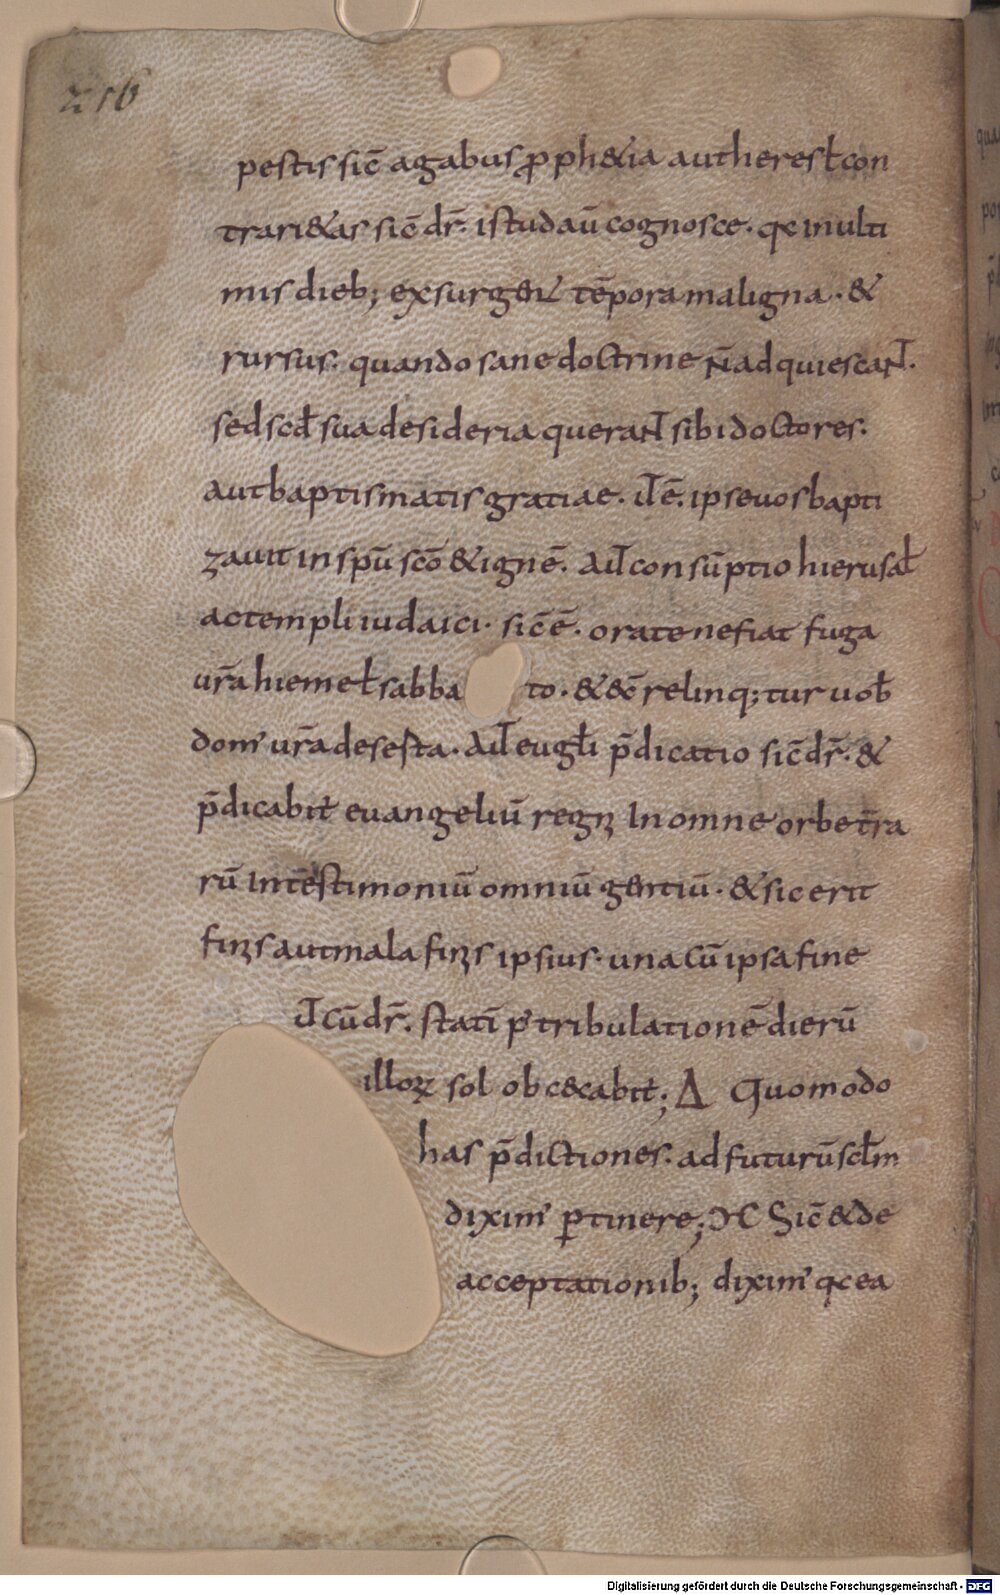 216
pestis sic̄ agabus ꝓph&ia aut heresł con
trari&as sic̄ dr̄. istud aū cognosce. qc in ulti
mis dieb; exsurgent tēpora maligna. &
rursus. quando sane doctrine n̄ adquiescant.
sed scd̄ sua desideria querant sibi doctores.
aut baptismatis gratiae. it̄ ē. ipse uos bapti
zauit in spū scō & ignē. aut̄ consūptio hierusał
ac templi iudaici. sic̄ ē. orate ne fiat fuga
ur̄a hieme ł sabba to. & &c̄ relinq; tur uob̄
dom' ur̄a deserta. aut̄ eugłi p̄dicatio sic̄ dr̄. &
p̄dicabit euangeliū regni in omne orbe tr̄a
rū in testimoniū omniū gentiū. & sic erit
finis aut mala finis ipsius. una cū ipsa fine
ut̄ cū dr̄. statī p' tribulationē dierū
illoꝝ sol obc&cabit; Δ Quomodo
has p̄dictiones. ad futurū scłm
dixim' ꝑtinere; ϽC Sic̄ & de
acceptationib; dixim' qc ea
Digitalisierung gefördert durch die Deutsche Forschungsgemeinschaft - DFG